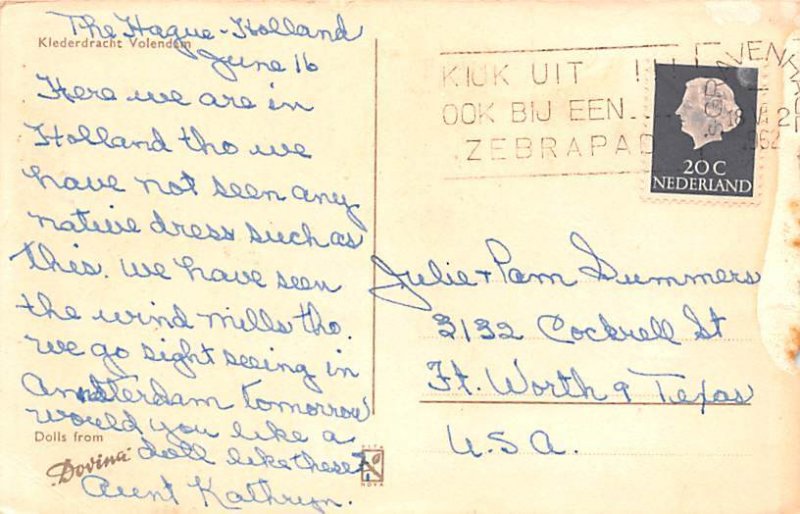 The Hague - Holland
Klederdracht Volendam
June 16
Here we are in
Holland tho we
have not seen any
native dress such as
this. We have seen
the wind mills tho.
We go sight seeing in
Amsterdam tomorrow
Would you like a
doll like these?
Aunt Kathryn.
Dolls from
Dovina
KIJK UIT !!!
OOK BIJ EEN...
ZEBRAPAD
'S GRAVENHAGE
18 VI 2
1962
20 C
NEDERLAND
Julie + Pam Summers
3132 Cockrell St
Ft. Worth 9 Texas
U.S.A.
NOVA